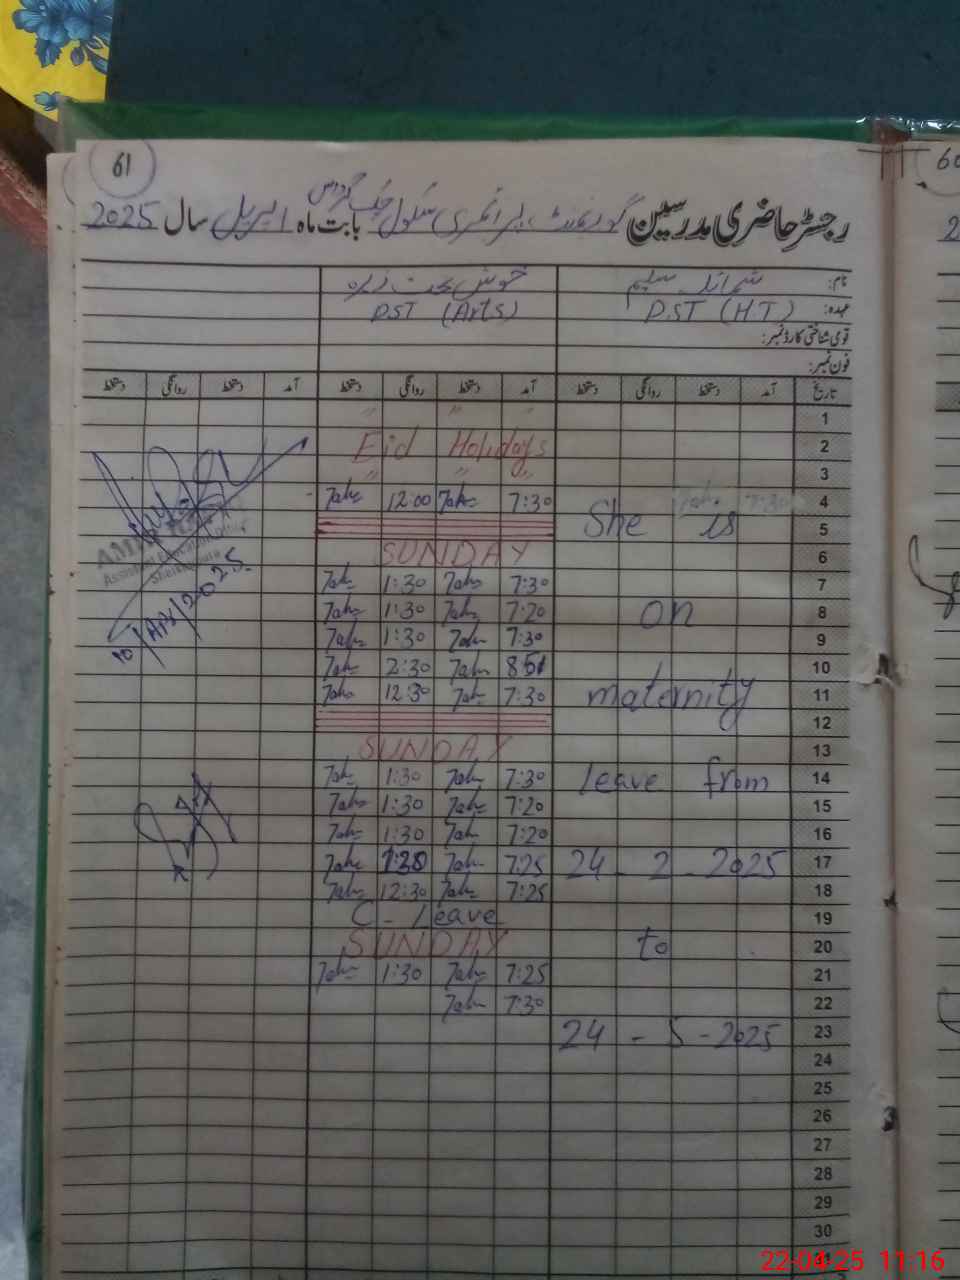 61
رجسٹر حاضری مدرسین گورنمنٹ پرائمری سکول چک بابت ماہ اپریل سال 2025
نام: شمائلہ سلیم خوش بخت زہرہ
عہدہ: P.ST (HT) P.ST (Arts)
قومی شناختی کارڈ نمبر:
فون نمبر:
تاریخ آمد دستخط روانگی دستخط آمد دستخط روانگی دستخط آمد دستخط روانگی دستخط
1 " " "
2 Eid Holidays
3 " " "
4 7:30 12:00 7:30
5 She is
6 SUNDAY
7 7:30 1:30
8 on 7:20 1:30
9 7:30 1:30
10 8:51 2:30
11 maternity 7:30 12:30
12
13 SUNDAY
14 Leave from 7:30 1:30
15 7:20 1:30
16 7:20 1:30
17 24 - 2 - 2025 7:25 1:30
18 7:25 12:30
19 C - Leave
20 to SUNDAY
21 7:25 1:30
22 7:30
23 24 - 5 - 2025
24
25
26
27
28
29
30
31
Assistant Education Officer
10/Apr/2025.
60
2
22-04-25 11:16